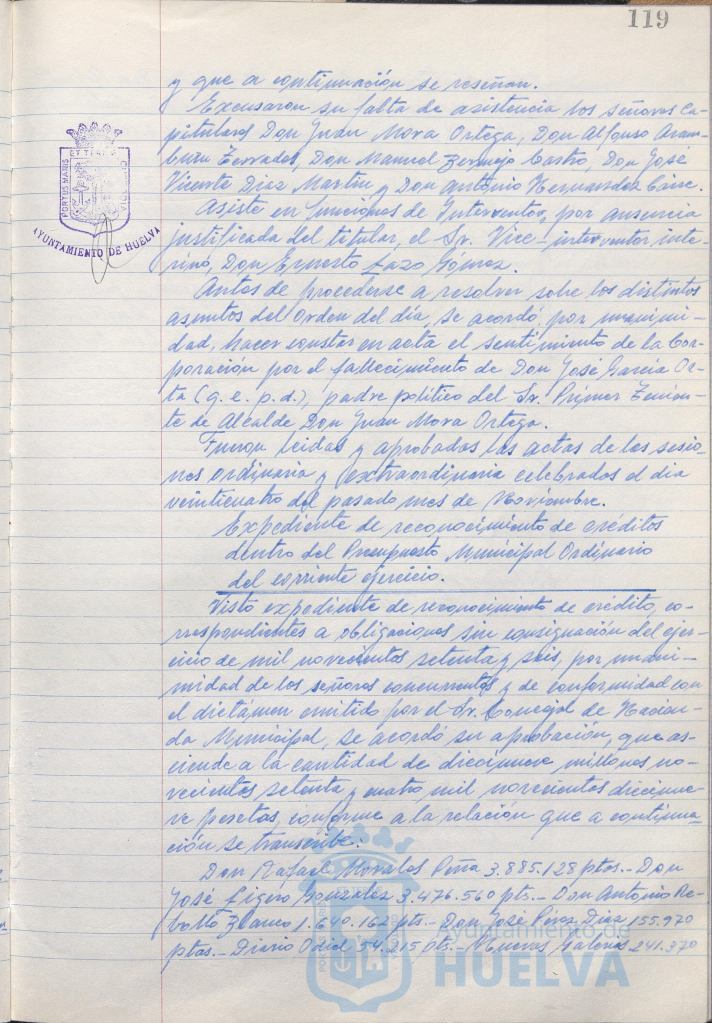 119
y que a continuación se reseñan.
Excusaron su falta de asistencia los señores Ca-
pitulares Don Juan Mora Ortega, Don Alfonso Aram-
buru Terrades, Don Manuel Bermejo Castro, Don José
Vicente Diaz Martin y Don Antonio Hernandez Cane.
Asiste en funciones de Interventor, por ausencia
justificada del titular, el Sr. Vice-interventor inte-
rino, Don Ernesto Lazo Gómez.
Antes de procederse a resolver sobre los distintos
asuntos del Orden del día, se acordó, por unanimi-
dad, hacer constar en acta el sentimiento de la Cor-
poración por el fallecimiento de Don José García Or-
ta (q.e.p.d.), padre político del Sr. Primer Tenien-
te de Alcalde Don Juan Mora Ortega.
Fueron leidas y aprobadas las actas de las sesio-
nes ordinaria y extraordinaria celebradas el dia
veinticuatro del pasado mes de Noviembre.
Expediente de reconocimiento de créditos
dentro del Presupuesto Municipal Ordinario
del corriente ejercicio.
Visto expediente de reconocimiento de crédito, co-
rrespondientes a obligaciones sin consignación del ejer-
cicio de mil novecientos setenta y seis, por unani-
midad de los señores concurrentes y de conformidad con
el dictámen emitido por el Sr. Concejal de Hacien-
da Municipal, se acordó su aprobación, que as-
ciende a la cantidad de diecinueve millones no-
vecientos setenta y cuatro mil novecientos diecinue-
ve pesetas, conforme a la relación que a continua-
ción se transcribe:
Don Rafael Morales Peña 3.885.128 ptas.- Don
José Ligero Gonzalez 3.476.560 pts.- Don Antonio Re-
bollo Blanco 1.640.162 pts.- Don José Pérez Diaz 155.970
ptas.- Diario Odiel 54.215 pts.- Nuevas Galerias 241.370
PORTUS MARIS ET TERRE CUSTODIA
AYUNTAMIENTO DE HUELVA
Ayuntamiento de
HUELVA